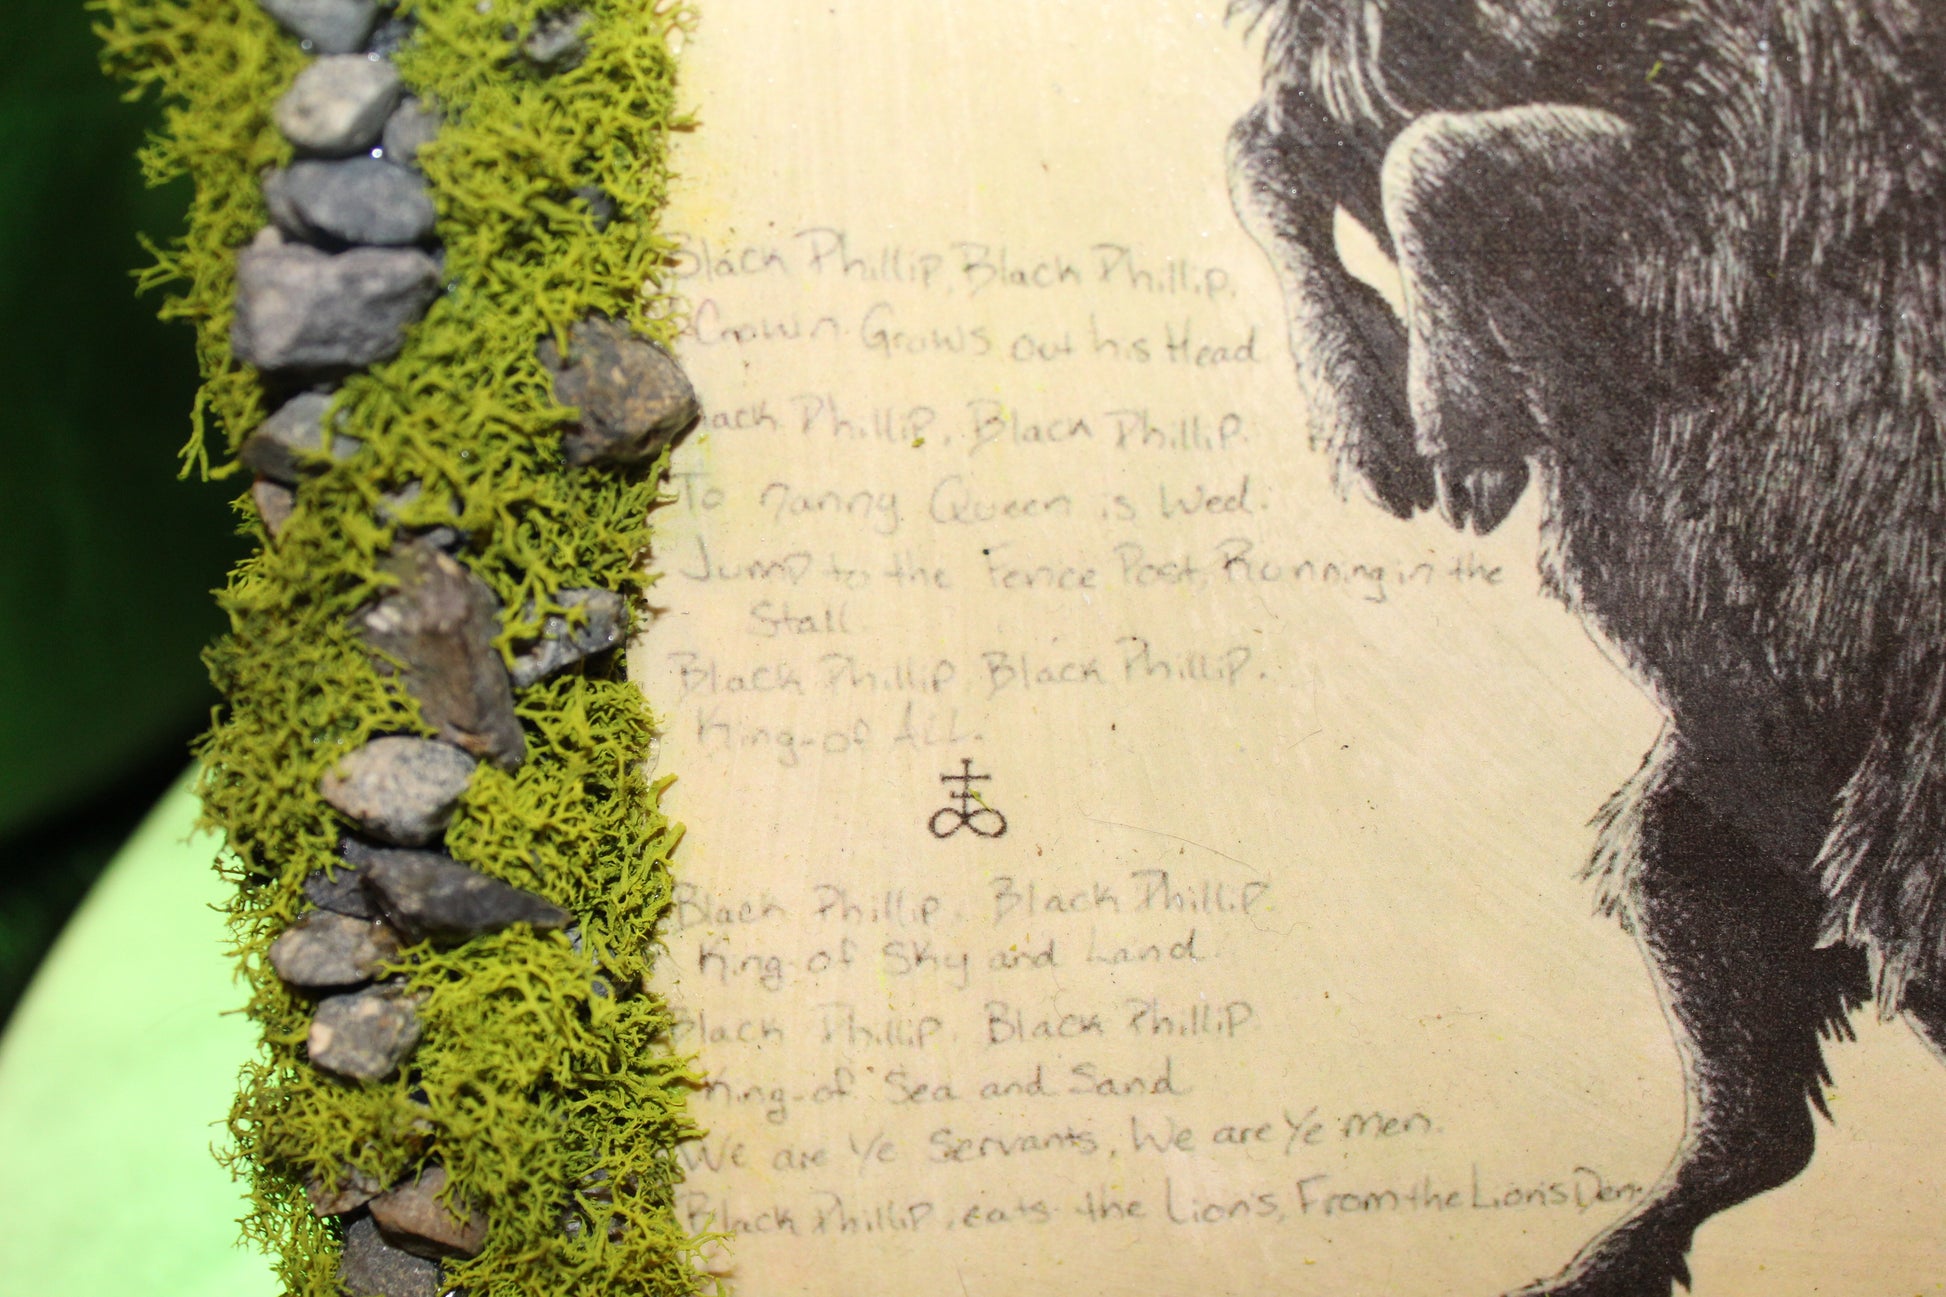 Black Phillip, Black Phillip,
A Crown Grows out his Head
Black Phillip, Black Phillip.
To nanny Queen is Wed.
Jump to the Fence Post, Running in the
Stall
Black Phillip, Black Phillip.
King-of ALL.
Black Phillip, Black Phillip.
King-of Sky and Land.
Black Phillip, Black Phillip
King-of Sea and Sand
We are Ye Servants, We are Ye men.
Black Phillip, eats the Lions, From the Lions Den.